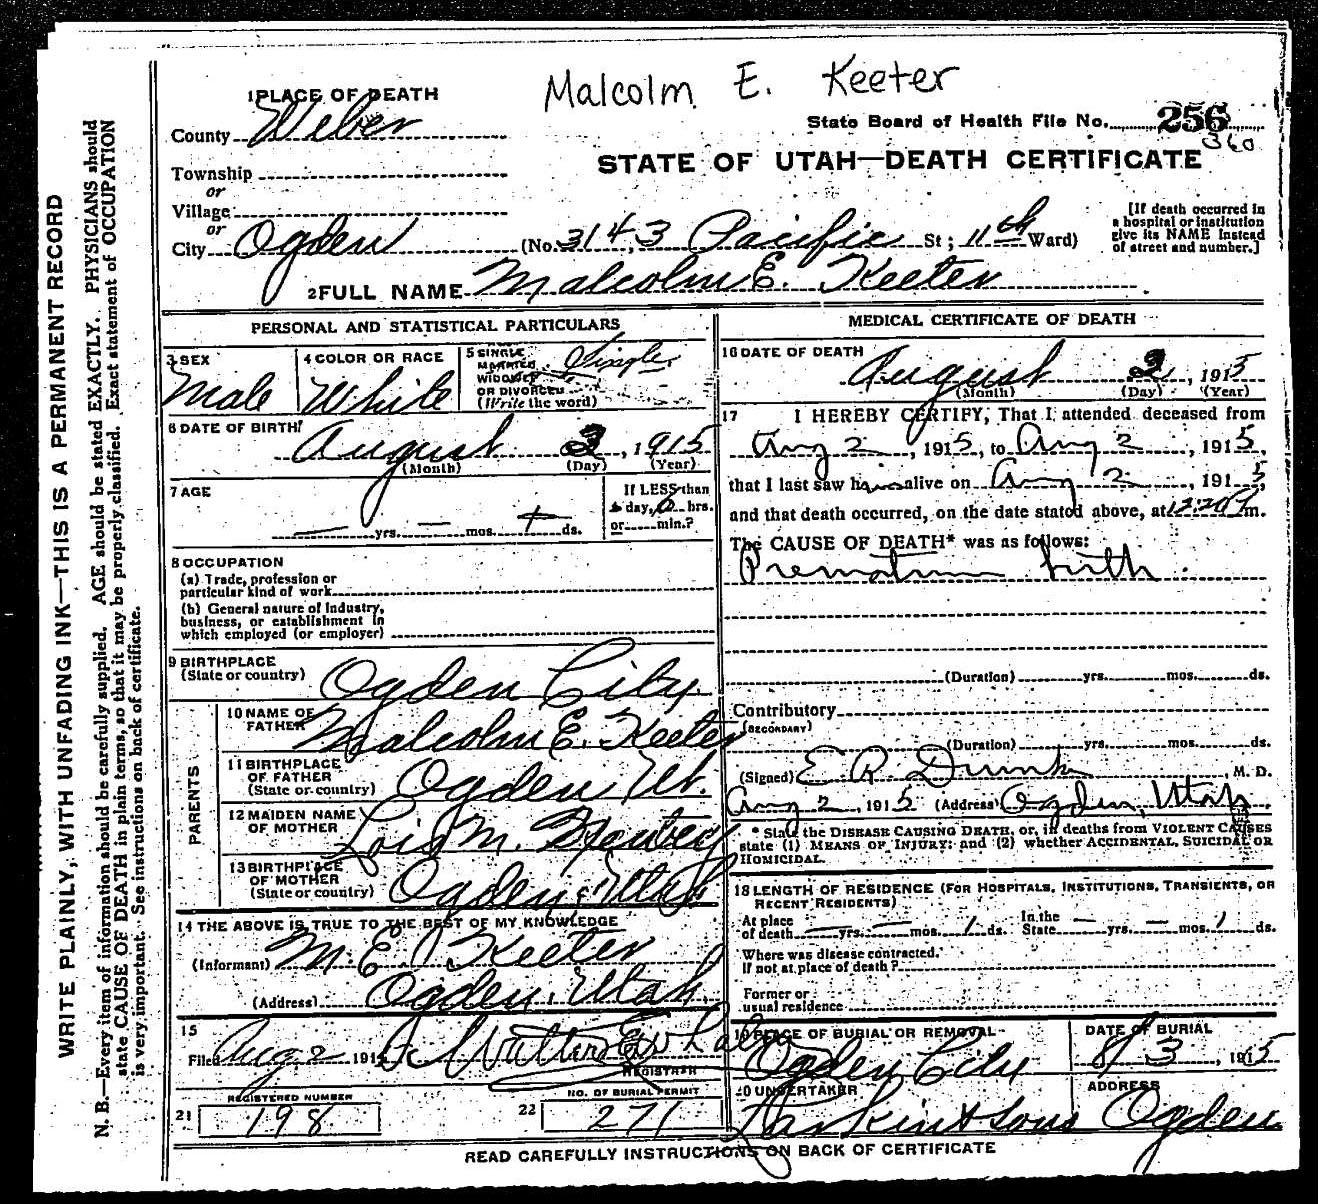 Malcolm E. Keeter
1 PLACE OF DEATH
County Weber
State Board of Health File No. 256
360
Township
or
Village
or
City Ogden
STATE OF UTAH—DEATH CERTIFICATE
(No. 3143 Pacific St; 11th Ward)
[If death occurred in
a hospital or institution
give its NAME instead
of street and number.]
2 FULL NAME Malcolm E. Keeter
PERSONAL AND STATISTICAL PARTICULARS
3 SEX
Male
4 COLOR OR RACE
White
5 SINGLE
MARRIED
WIDOWED
OR DIVORCED
(Write the word)
Single
6 DATE OF BIRTH
August 2, 1915
(Month) (Day) (Year)
7 AGE
yrs. mos. ds.
If LESS than
day, 6 hrs.
or min.?
8 OCCUPATION
(a) Trade, profession or
particular kind of work
(b) General nature of Industry,
business, or establishment in
which employed (or employer)
9 BIRTHPLACE
(State or country)
Ogden City.
PARENTS
10 NAME OF
FATHER
Malcolm E. Keeter
11 BIRTHPLACE
OF FATHER
(State or country)
Ogden Ut.
12 MAIDEN NAME
OF MOTHER
Lois M.
13 BIRTHPLACE
OF MOTHER
(State or country)
Ogden, Utah
14 THE ABOVE IS TRUE TO THE BEST OF MY KNOWLEDGE
(Informant) M. E. Keeter
(Address) Ogden, Utah
15
Filed Aug 2 191 Walter
REGISTRAR
21 REGISTERED NUMBER
198
22 NO. OF BURIAL PERMIT
271
MEDICAL CERTIFICATE OF DEATH
16 DATE OF DEATH
August 2, 1915
(Month) (Day) (Year)
17 I HEREBY CERTIFY, That I attended deceased from
Aug 2, 1915, to Aug 2, 1915,
that I last saw him alive on Aug 2, 1915,
and that death occurred, on the date stated above, at 12:20 P m.
The CAUSE OF DEATH* was as follows:
Premature birth.
(Duration) yrs. mos. ds.
Contributory
(SECONDARY)
(Duration) yrs. mos. ds.
(Signed) E R Dumke, M. D.
Aug 2, 1915 (Address) Ogden, Utah.
* State the DISEASE CAUSING DEATH, or, in deaths from VIOLENT CAUSES
state (1) MEANS OF INJURY; and (2) whether ACCIDENTAL, SUICIDAL OR
HOMICIDAL.
18 LENGTH OF RESIDENCE (FOR HOSPITALS, INSTITUTIONS, TRANSIENTS, OR
RECENT RESIDENTS)
At place
of death — yrs. — mos. 1 ds. In the State — yrs. — mos. 1 ds.
Where was disease contracted.
If not at place of death?
Former or
usual residence
19 PLACE OF BURIAL OR REMOVAL
Ogden City
DATE OF BURIAL
8/3, 1915
20 UNDERTAKER
Larkin & Sons
ADDRESS
Ogden
READ CAREFULLY INSTRUCTIONS ON BACK OF CERTIFICATE
WRITE PLAINLY, WITH UNFADING INK—THIS IS A PERMANENT RECORD
N. B.—Every item of information should be carefully supplied. AGE should be stated EXACTLY. PHYSICIANS should
state CAUSE OF DEATH in plain terms, so that it may be properly classified. Exact statement of OCCUPATION
is very important. See instructions on back of certificate.